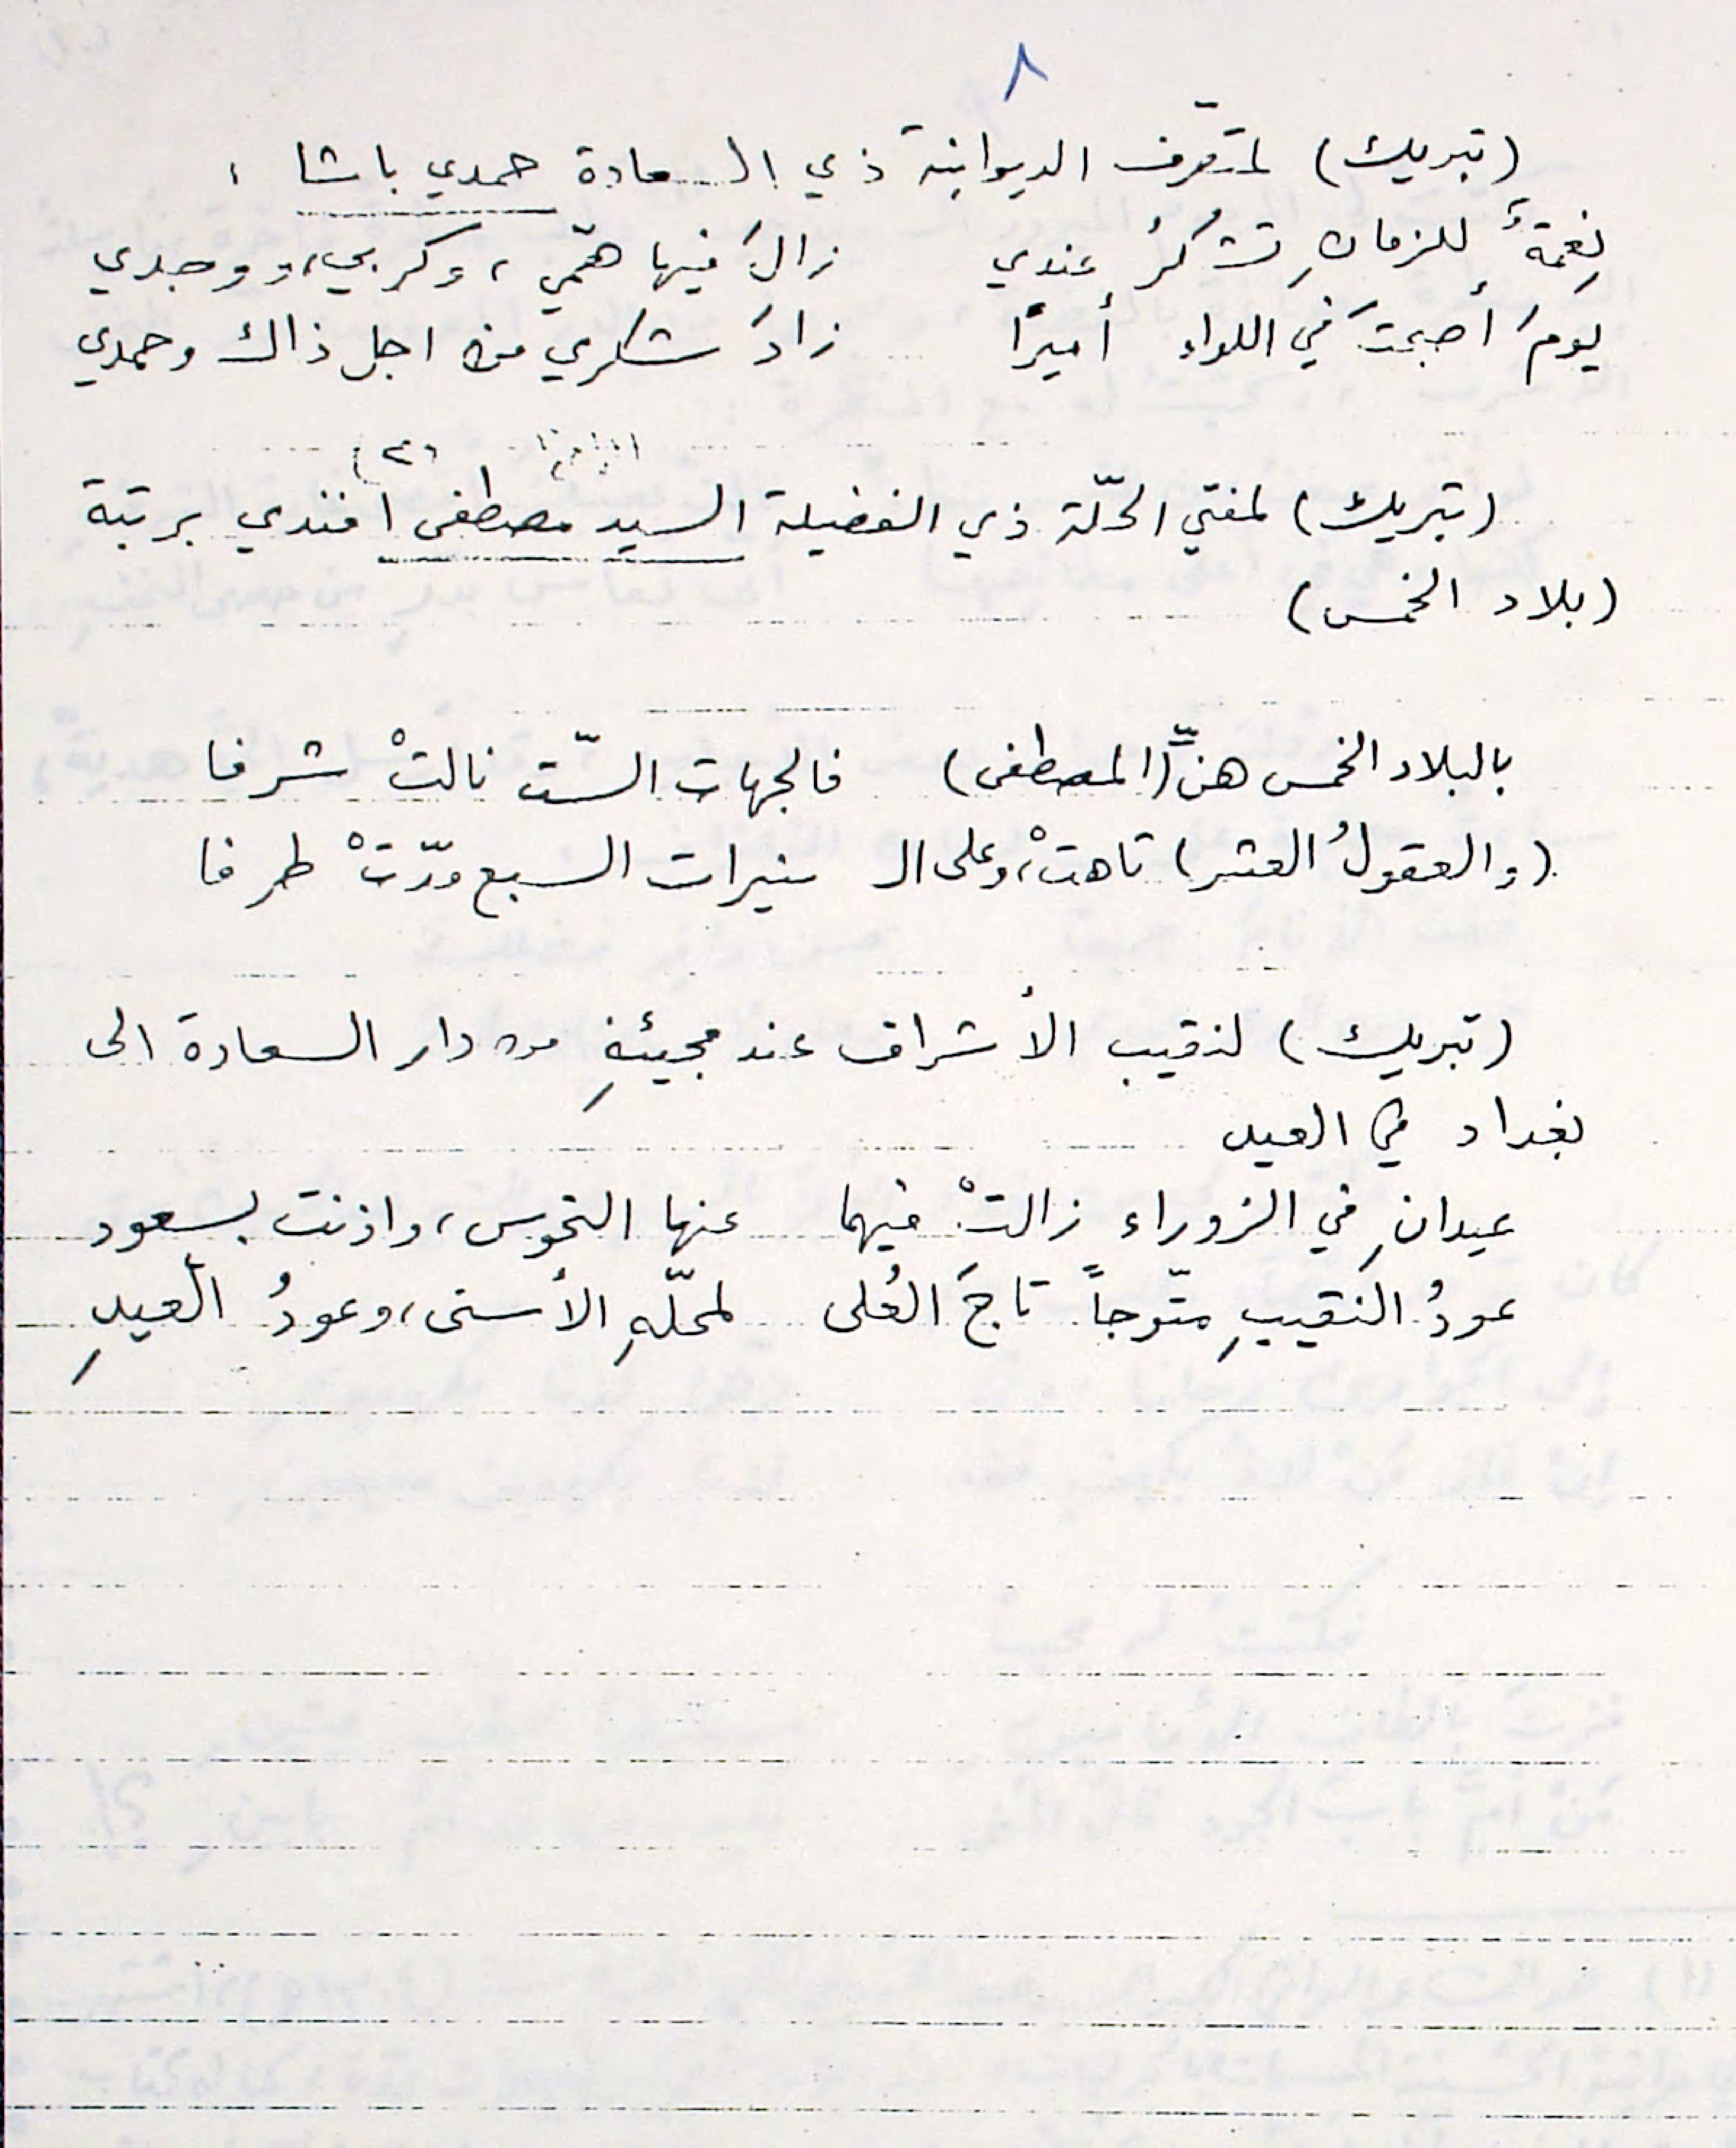 ٨
(تبريك) لمتصرّف الديوانية ذي السعادة حمدي باشا :
نِعمةٌ للزمانِ تشكرُ عندي زالَ فيها همّي، وكربي، ووجدي
يومَ أصبحتَ في اللواء أميرًا زادَ شكري من اجل ذاك وحمدي
(٢)
(تبريك) لمفتي الحلّة ذي الفضيلة السيد مصطفى افندي برتبة
(بلاد الخمس)
بالبلاد الخمس هنِّ (المصطفى) فالجهات الستّ نالتْ شرفا
(والعقولُ العشر) تاهتْ، وعلى الـ نيرات السبع مدّتْ طرفا
(تبريك) لنقيب الأشراف عند مجيئهِ من دار السعادة الى
بغداد في العيد
عيدانِ في الزوراء زالتْ فيهما عنها النحوس، واذنت بسعود
عودُ النقيبِ متّوجاً تاجَ العُلى لمحلّهِ الأسنى، وعودُ العيدِ